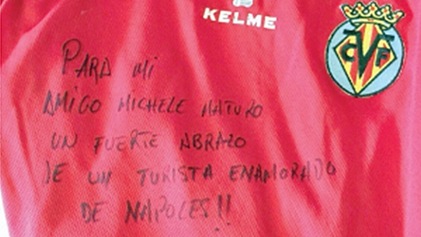 KELME
CVF
PARA MI
AMIGO MICHELE MATURO
UN FUERTE ABRAZO
DE UN TURISTA ENAMORADO
DE NAPOLES!!